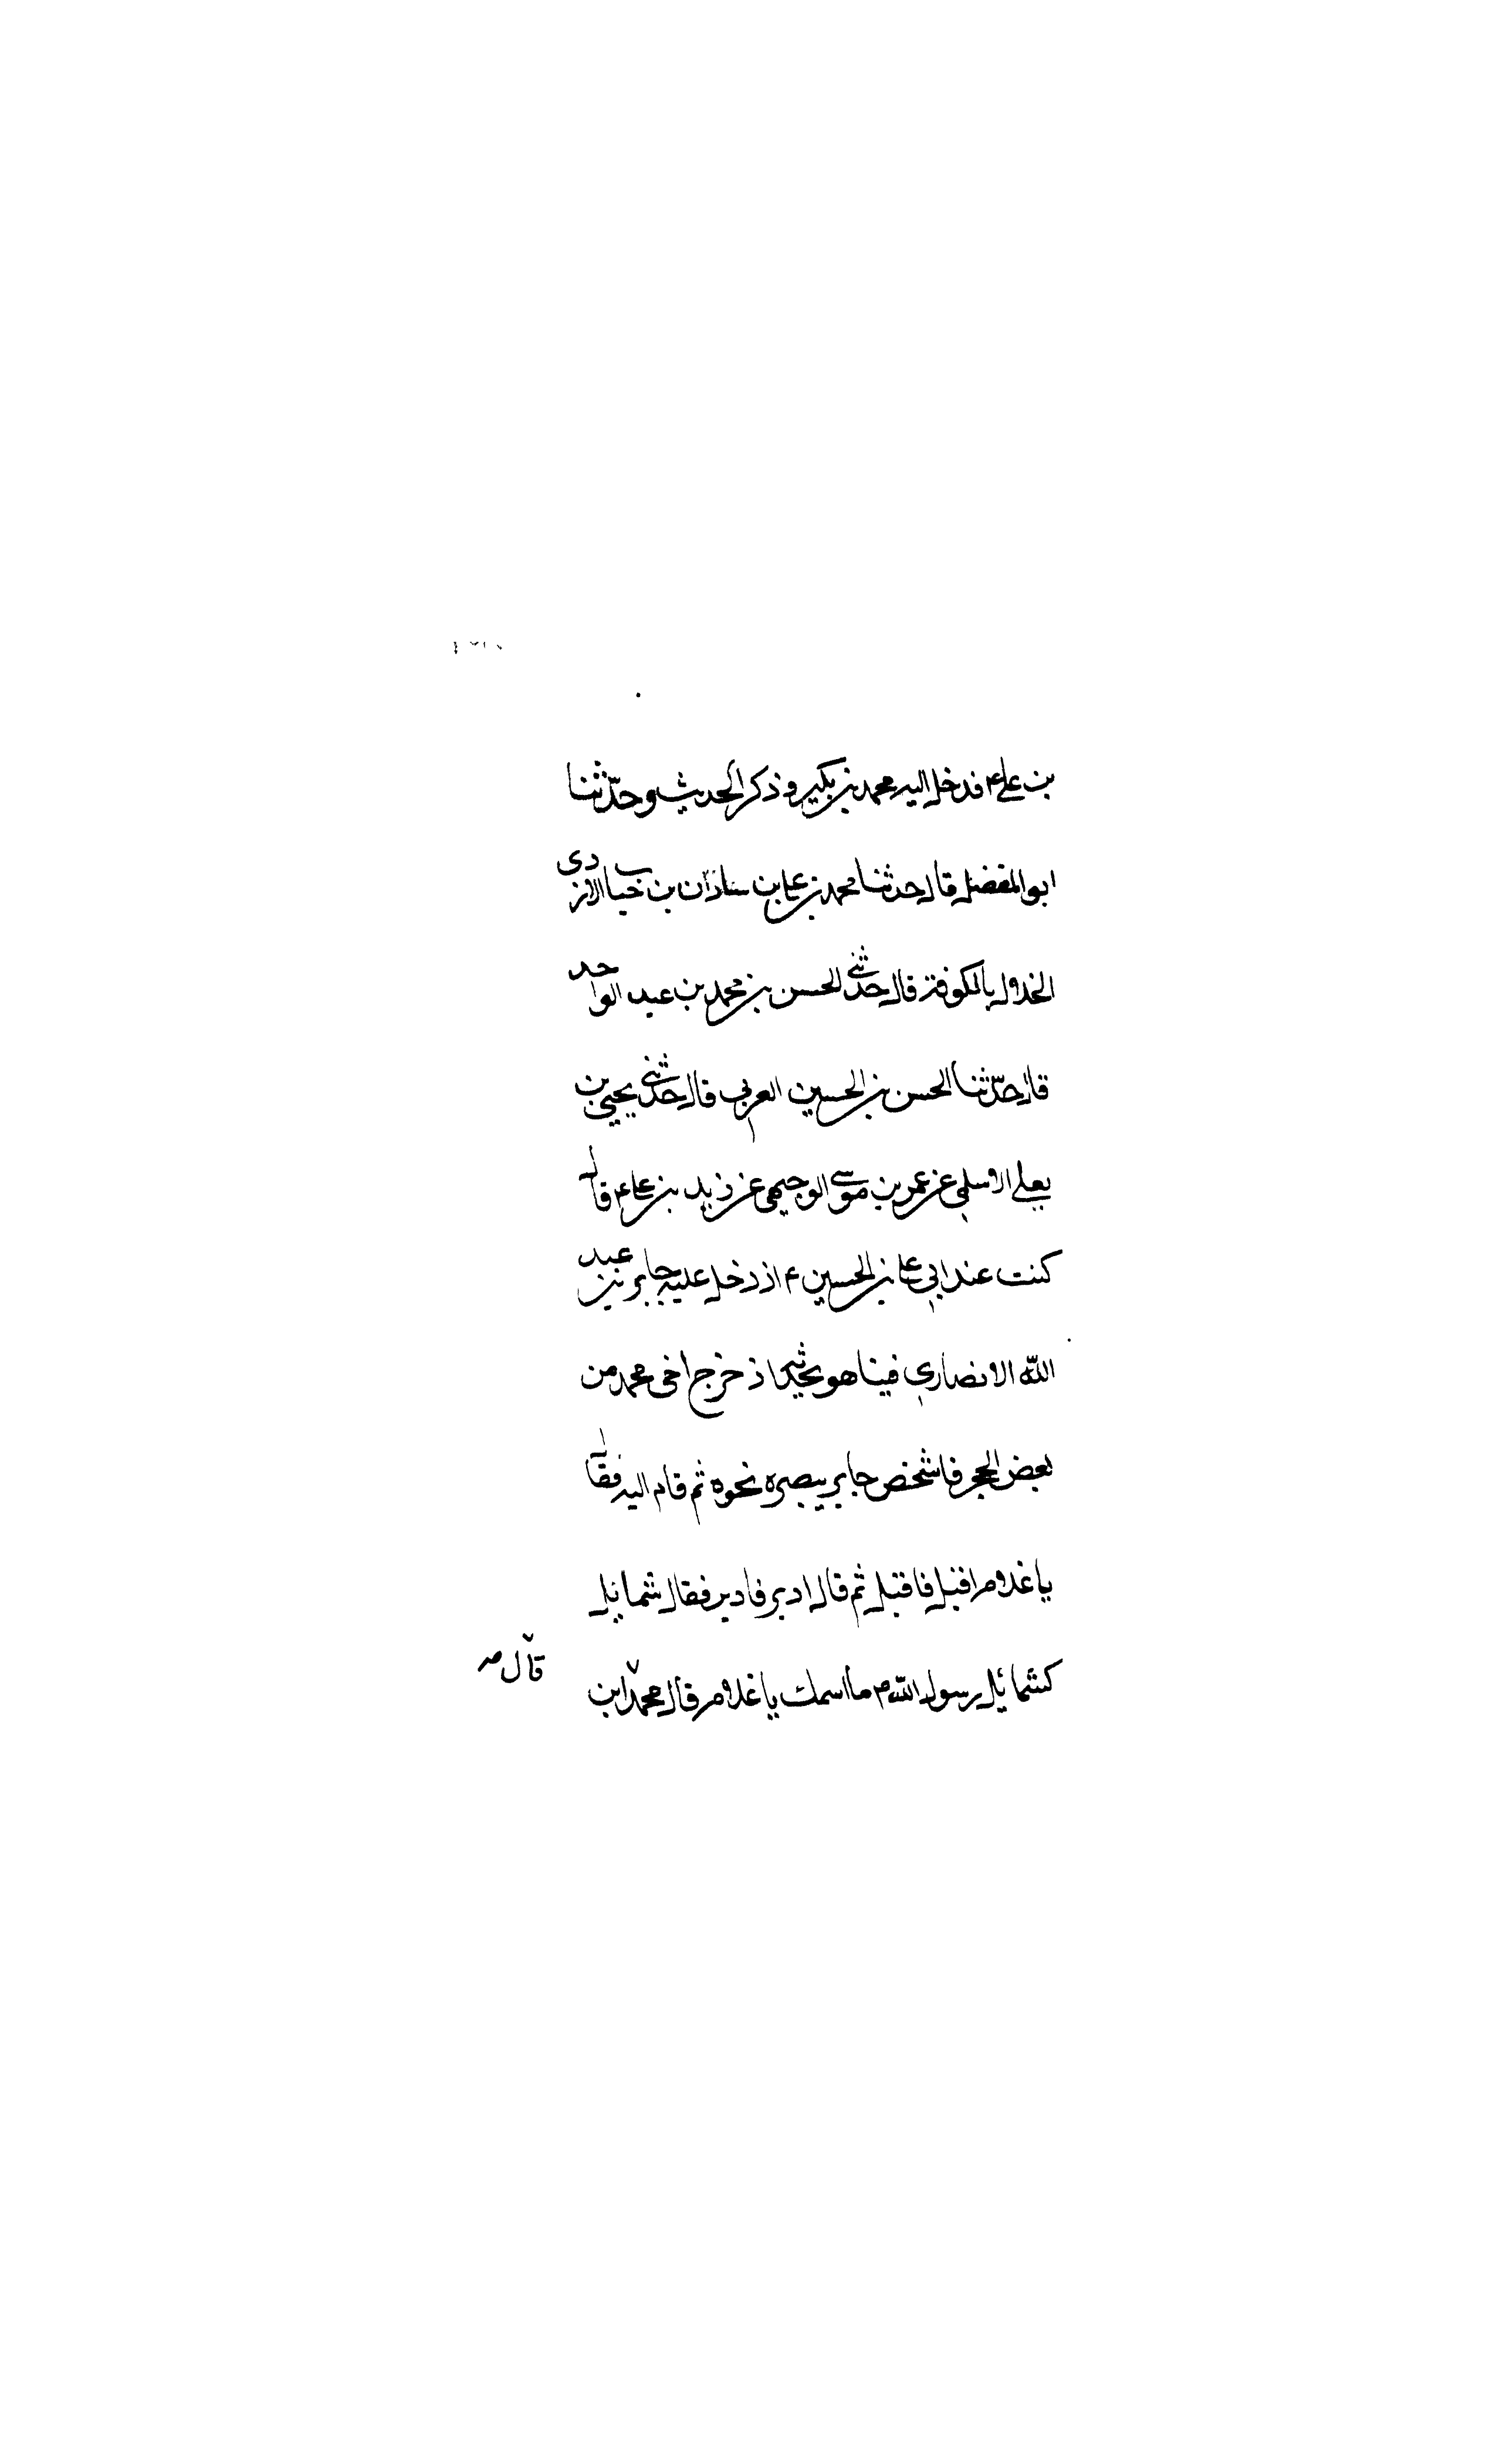 بن علي ع فدخل اليه محمد بن بكير وذكر الحديث وحدّثنا
ابو المفضل قال حدثنا محمد بن علي بن شاذان بن حباب الازدى
الخلال بالكوفة قال حدثنى الحسن بن محمد بن عبد الواحد
قال حدّثنا الحسن بن الحسين العربي قال حدثنى يحيى بن
يعلي الاسلمي عن عمر بن موسى الوجيهى عن زيد بن علي ع قال
كنت عند ابي علي بن الحسين ع اذ دخل عليه جابر بن عبد
الله الانصاري فبينا هو يحدثه اذ خرج اخى محمد من
بعض الحجر فاشخص جابر ببصره نحوه ثم قام اليه فقال
يا غلام اقبل فاقبل ثم قال ادبر فادبر فقال شمائل
كشمائل رسول الله ص ما اسمك يا غلام قال محمد قال ابن